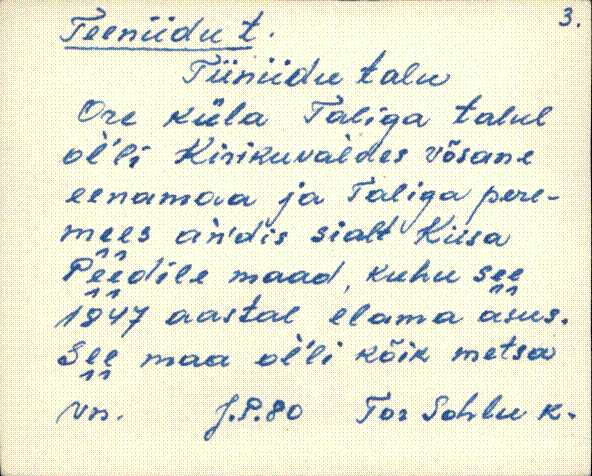 3.
Teeniidu t.
Tiiniidu talu
Ore küla Taliga talul
ol'li Kirikuvaldes võsane
eenamaa ja Taliga pere-
mees an'dis sialt Kiisa
Peedile maad, kuhu see
1947 aastal elama asus.
See maa ol'li kõik metsa
vn. J.P.80 Tor Sohlu k.